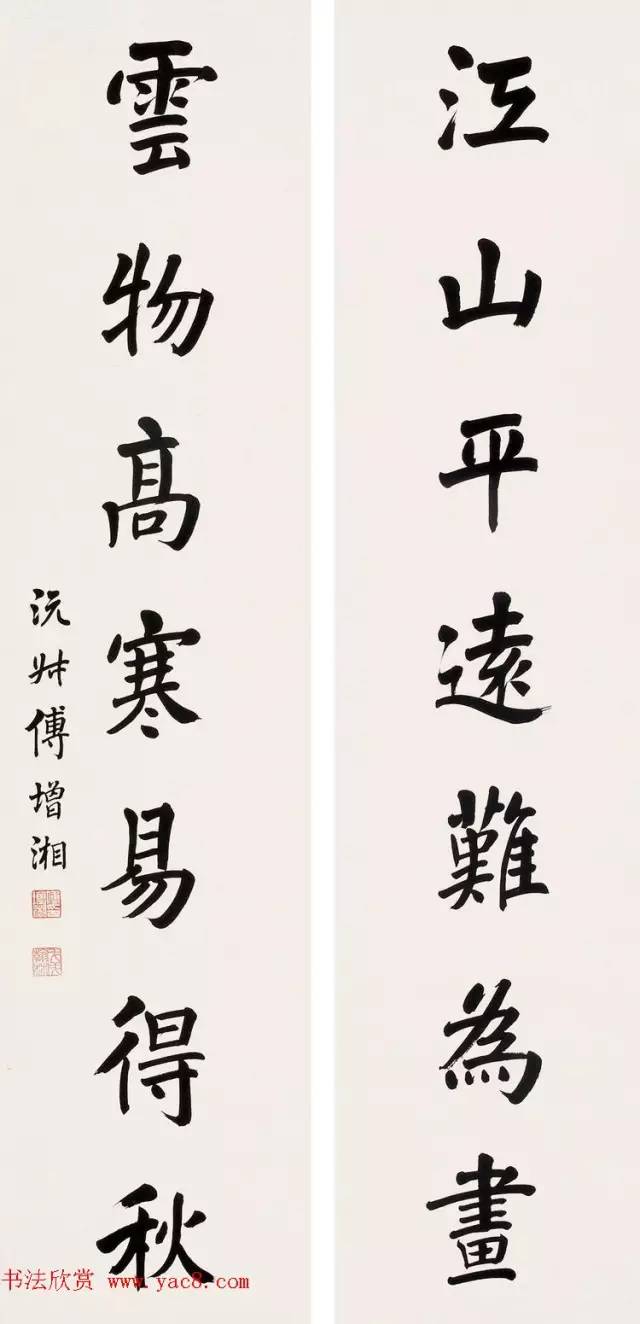 江山平遠難為畫
雲物高寒易得秋
沅叔傅增湘
书法欣赏 www.yac8.com